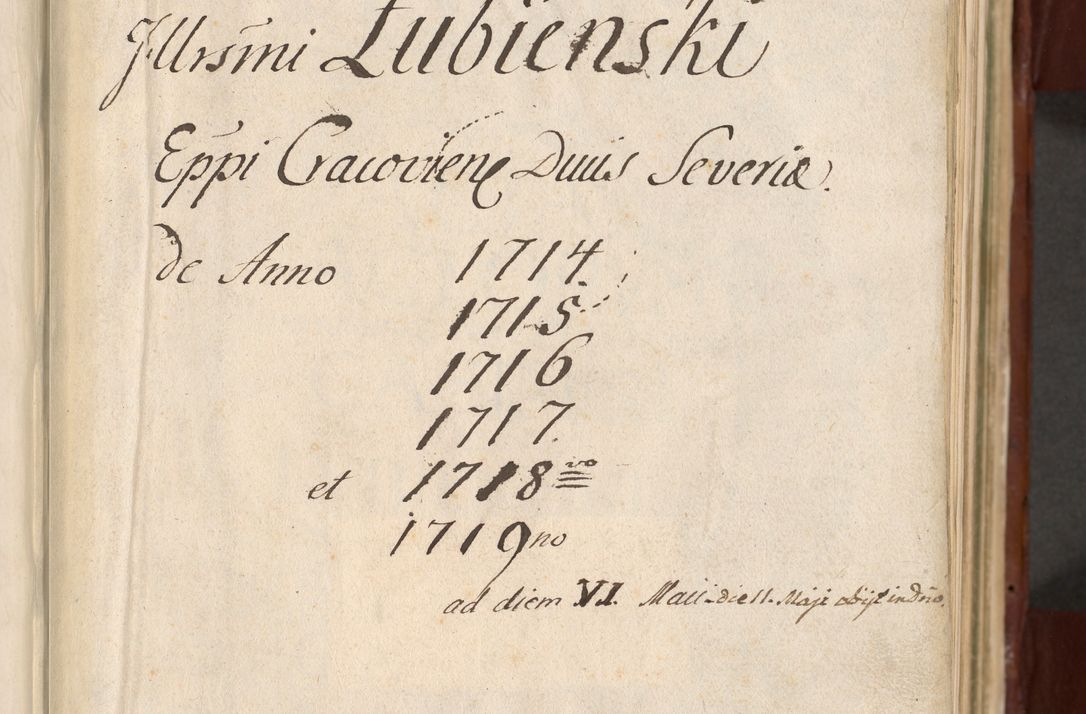 Illrsm̄i Łubieński
Ep̄pi Cracovien Ducis Severiæ.
de Anno 1714.
1715
1716
1717.
et 1718vo
1719no
ad diem VI. Maii. die 11. Maji obijt in Dn̄o.